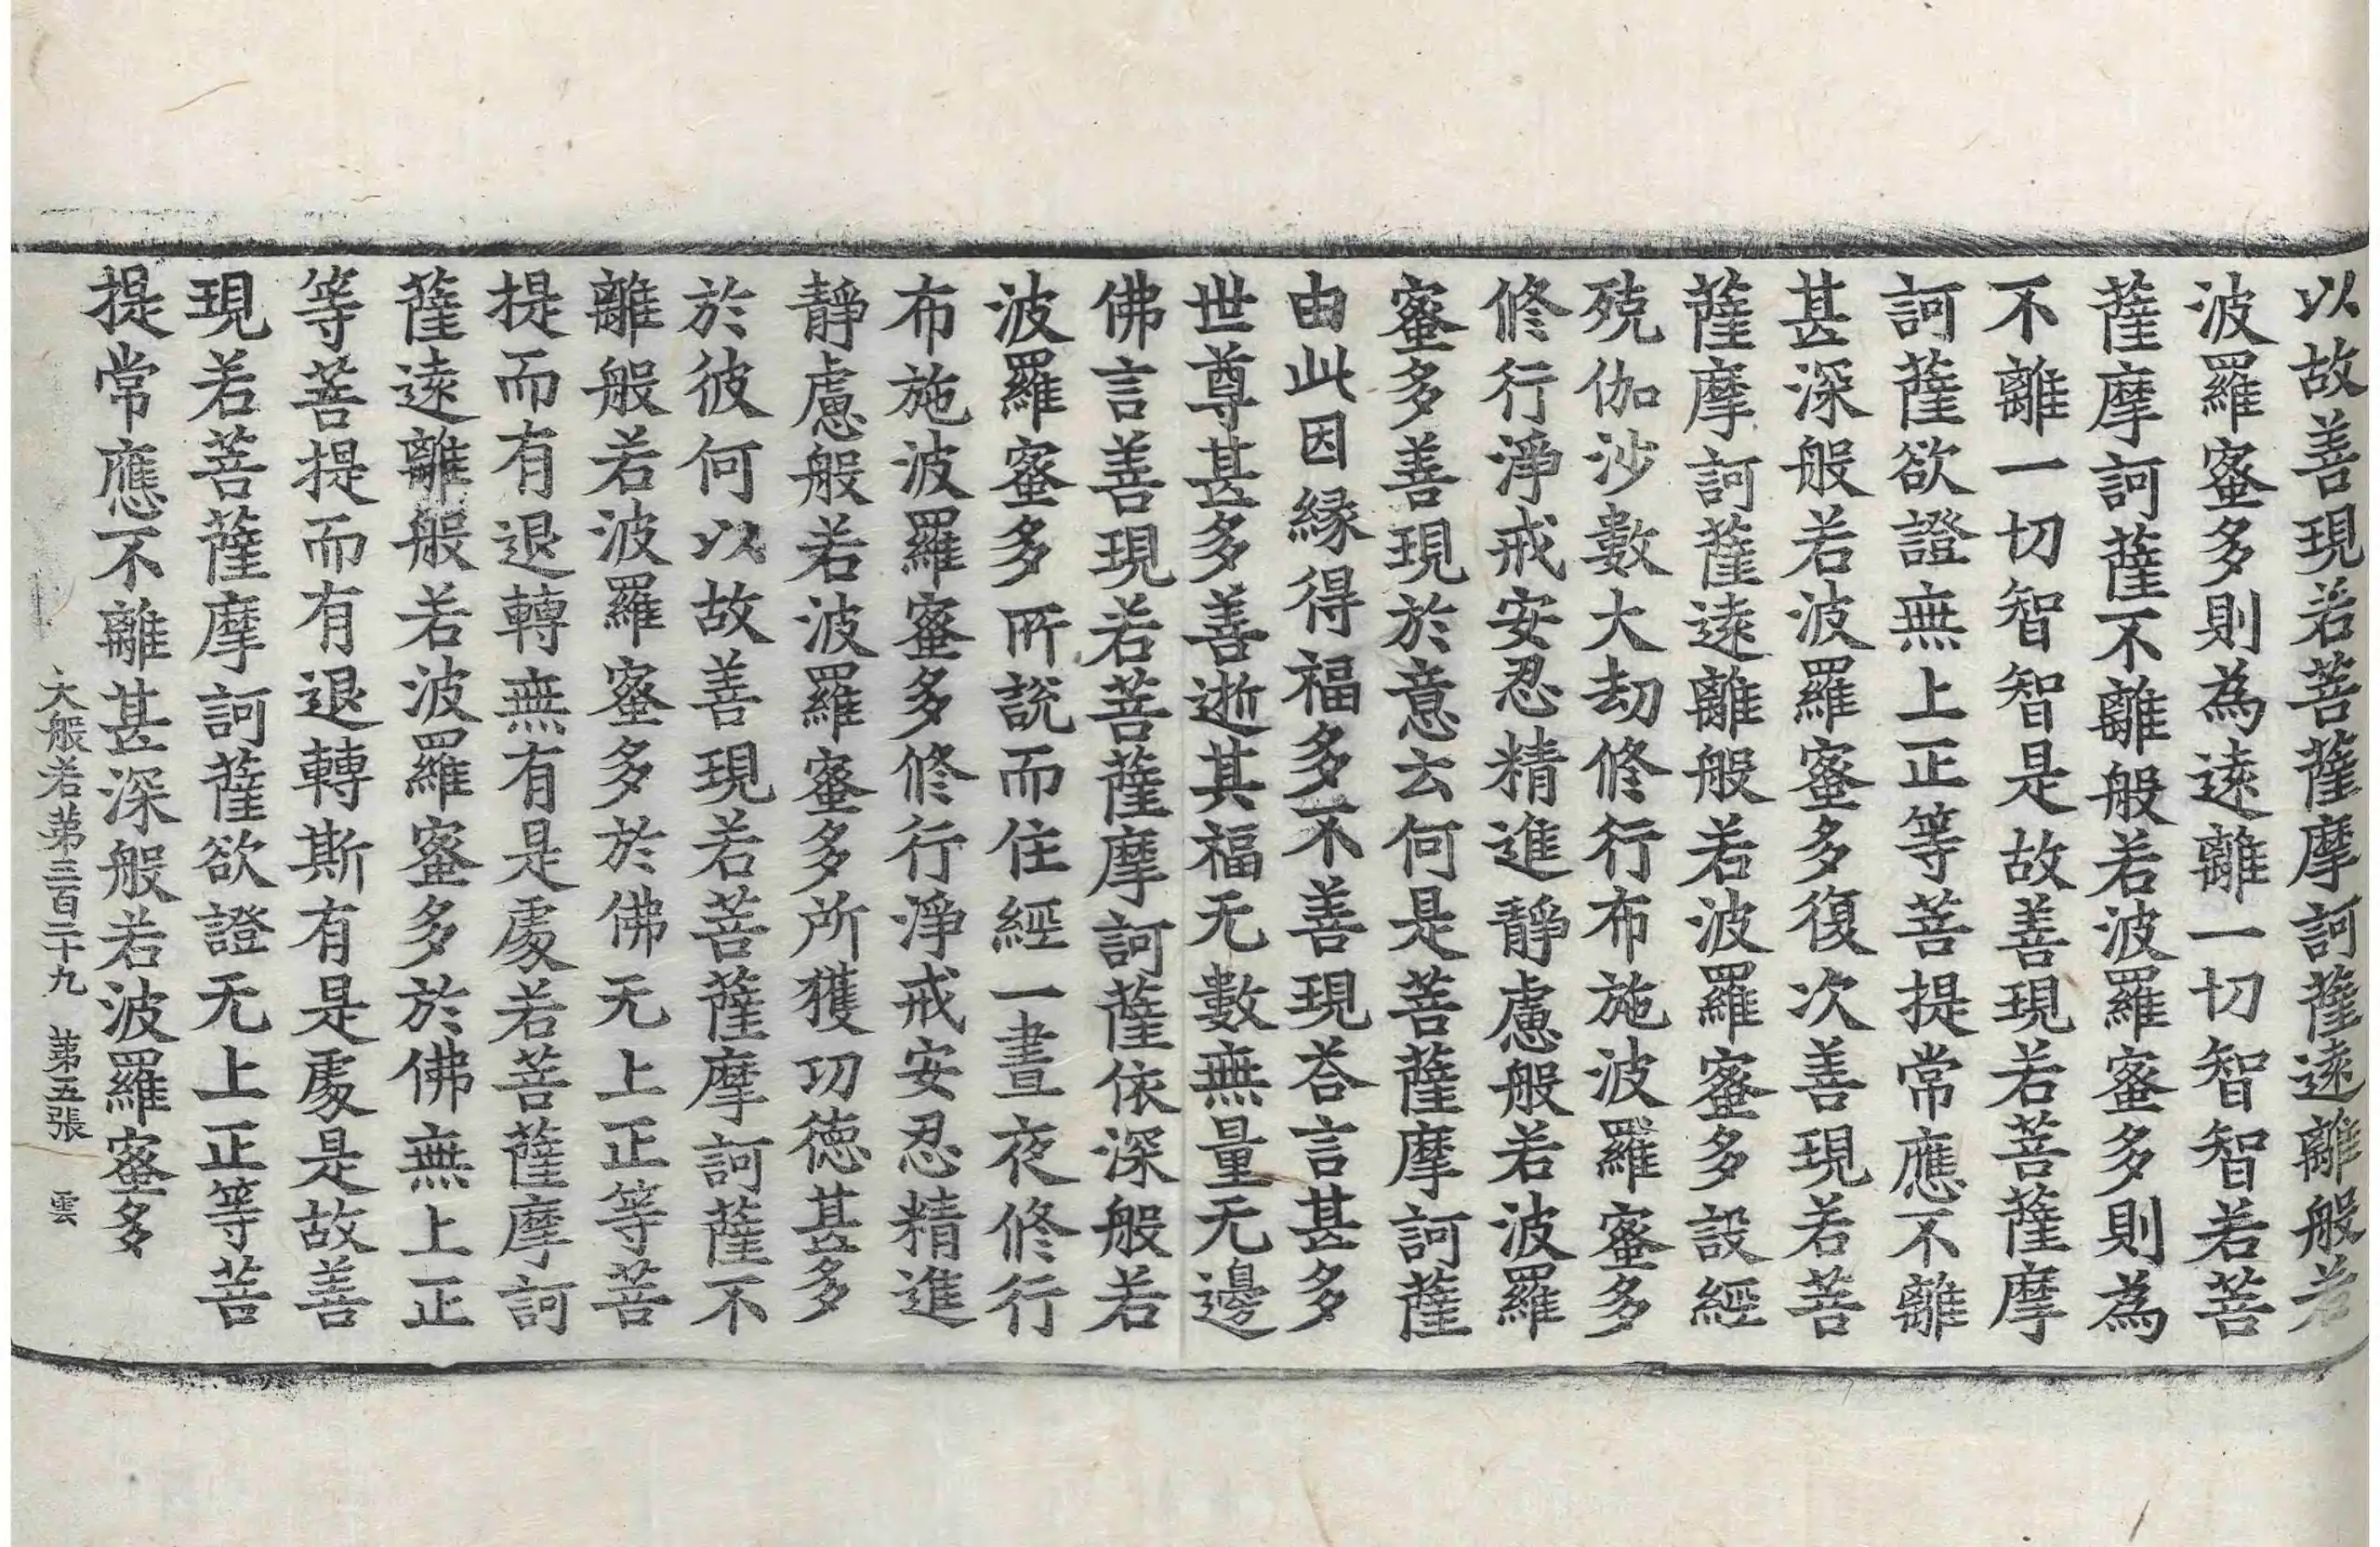 以故善現若菩薩摩訶薩遠離般若
波羅蜜多則為遠離一切智智若菩
薩摩訶薩不離般若波羅蜜多則為
不離一切智智是故善現若菩薩摩
訶薩欲證無上正等菩提常應不離
甚深般若波羅蜜多復次善現若菩
薩摩訶薩遠離般若波羅蜜多設經
殑伽沙數大劫修行布施波羅蜜多
修行淨戒安忍精進靜慮般若波羅
蜜多善現於意云何是菩薩摩訶薩
由此因緣得福多不善現荅言甚多
世尊甚多善逝其福无數無量无邊
佛言善現若菩薩摩訶薩依深般若
波羅蜜多所說而住經一晝夜修行
布施波羅蜜多修行淨戒安忍精進
靜慮般若波羅蜜多所獲功德甚多
於彼何以故善現若菩薩摩訶薩不
離般若波羅蜜多於佛无上正等菩
提而有退轉無有是處若菩薩摩訶
薩遠離般若波羅蜜多於佛無上正
等菩提而有退轉斯有是處是故善
現若菩薩摩訶薩欲證无上正等菩
提常應不離甚深般若波羅蜜多
大般若第三百二十九 第五張 雲